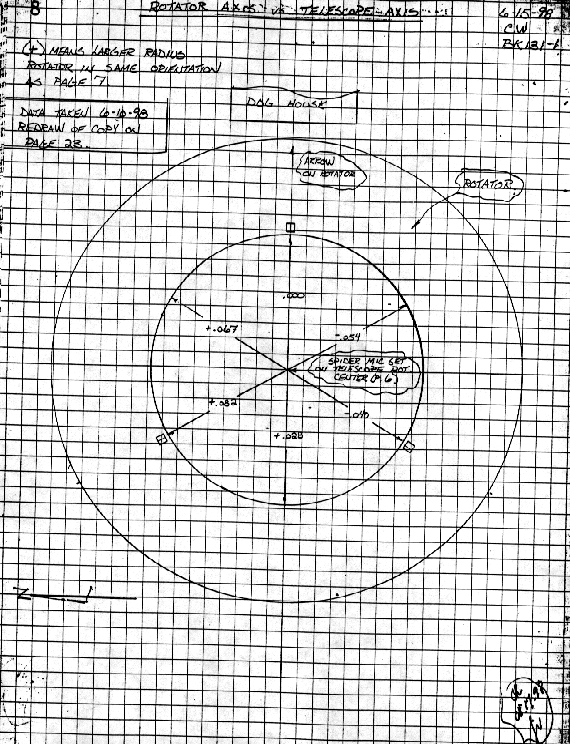 8
ROTATOR AXIS vs TELESCOPE AXIS
6-15-98
CW
BK131-1
(+) MEANS LARGER RADIUS
ROTATOR IN SAME ORIENTATION
AS PAGE 7
DOG HOUSE
DATA TAKEN 6-10-98
REDRAW OF COPY ON
PAGE 23.
ARROW
ON ROTATOR
ROTATOR
.000
+.067
-.054
SPIDER MIC SET
ON TELESCOPE ROT
CENTER (P. 6)
+.032
+.028
N